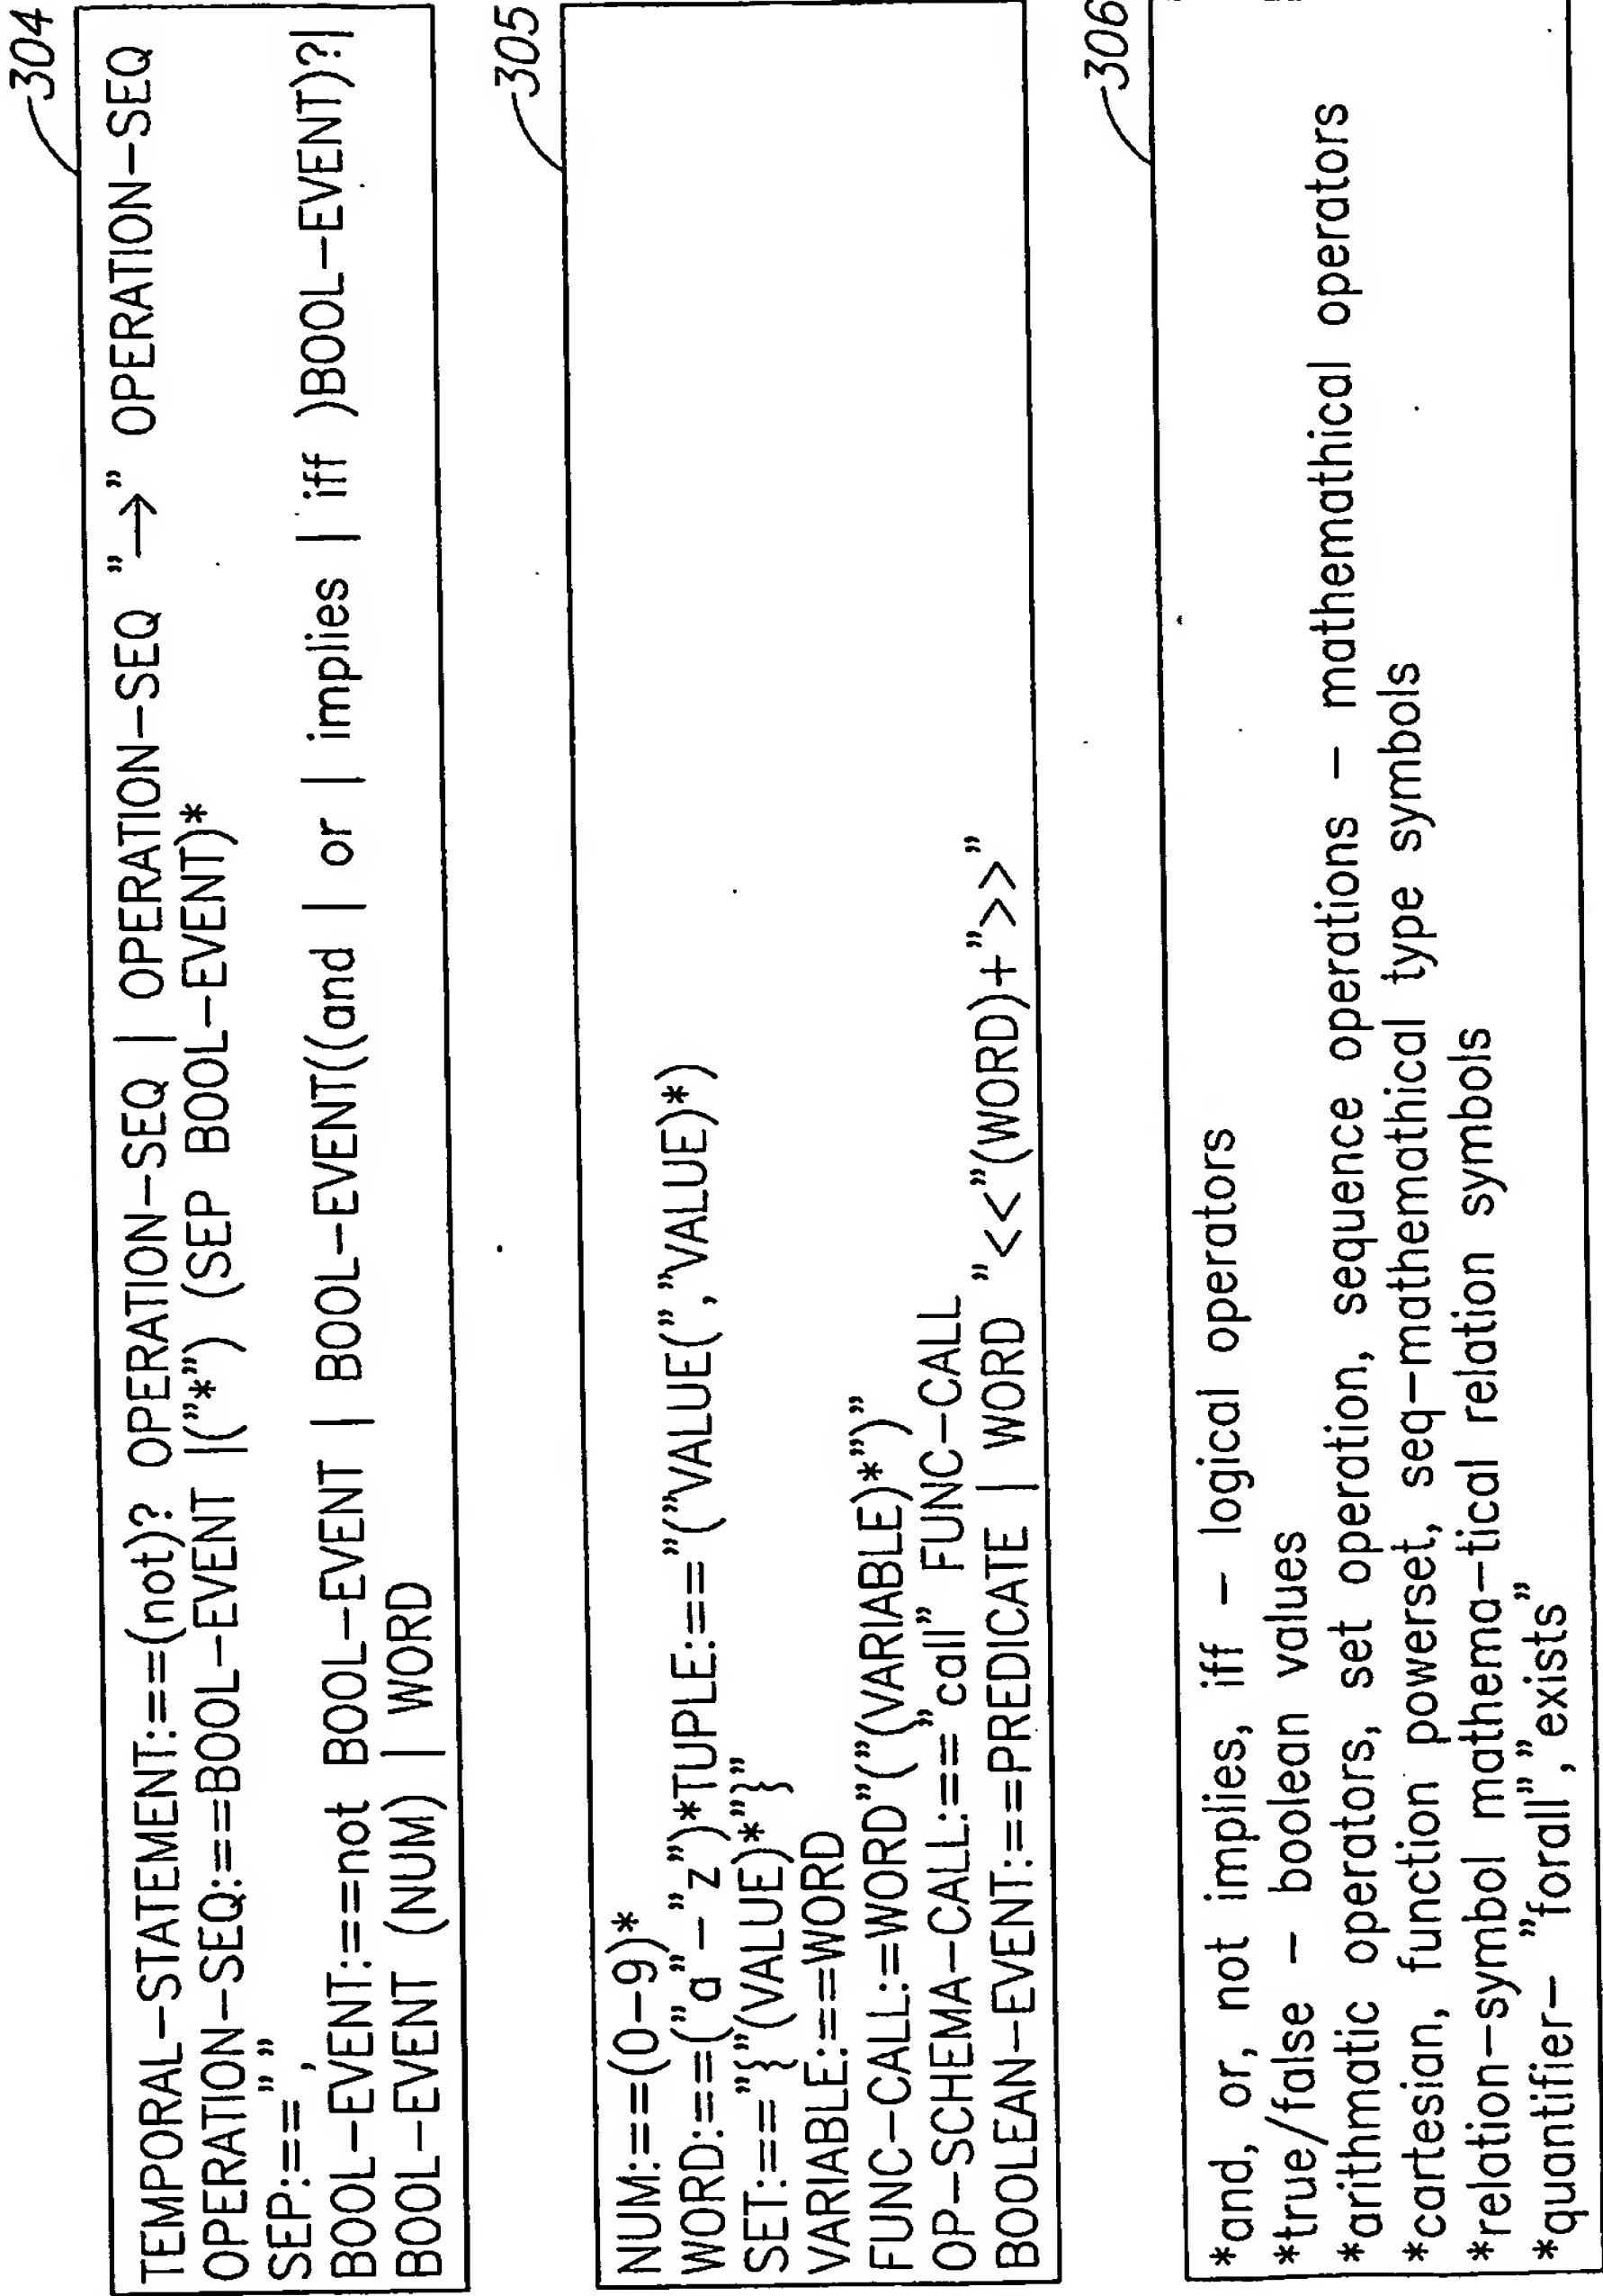 304
TEMPORAL-STATEMENT:==(not)? OPERATION-SEQ | OPERATION-SEQ "→" OPERATION-SEQ
OPERATION-SEQ:==BOOL-EVENT |("*") (SEP BOOL-EVENT)*
SEP:==","
BOOL-EVENT:==not BOOL-EVENT | BOOL-EVENT((and | or | implies | iff )BOOL-EVENT)?|
BOOL-EVENT (NUM) | WORD
305
NUM:==(0-9)*
WORD:==("a"-"z")*TUPLE:=="("VALUE(","VALUE)*)
SET:=="{"(VALUE)*"}"
VARIABLE:==WORD
FUNC-CALL:=WORD"("(VARIABLE)*")"
OP-SCHEMA-CALL:=="call" FUNC-CALL
BOOLEAN-EVENT:==PREDICATE | WORD "<<"(WORD)+">>"
306
*and, or, not implies, iff - logical operators
*true/false - boolean values
*arithmatic operators, set operation, sequence operations - mathemathical operators
*cartesian, function powerset, seq-mathemathical type symbols
*relation-symbol mathema-tical relation symbols
*quantifier- "forall","exists"